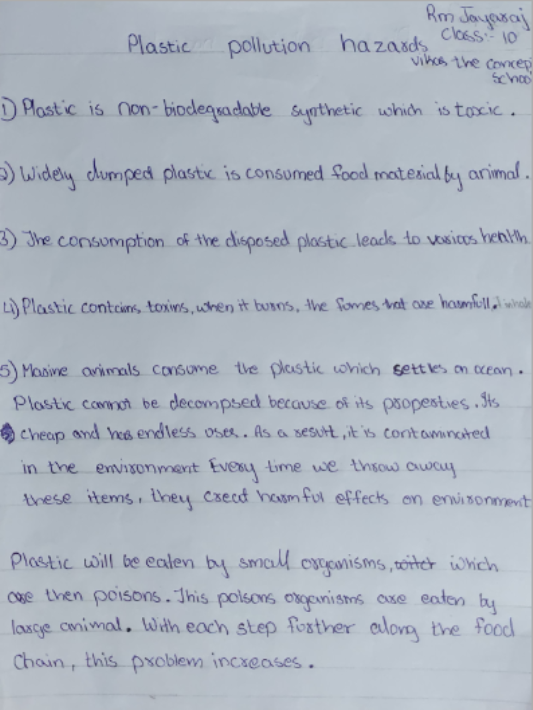 Rm Jayaraj
Class:- 10
Vikas the concep
School
Plastic pollution hazards
1) Plastic is non-biodegradable synthetic which is toxic.
2) Widely dumped plastic is consumed food material by animal.
3) The consumption of the disposed plastic leads to various health
4) Plastic contains, toxins, when it burns, the fomes that are harmfull,
5) Marine animals consume the plastic which settles on ocean.
Plastic cannot be decompsed because of its properties. Its
cheap and has endless uses. As a result, it is contaminated
in the environment Every time we throw away
these items, they creat harmful effects on environment
Plastic will be eaten by small organisms, which
are then poisons. This poisons organisms are eaten by
large animal. With each step further along the food
Chain, this problem increases.